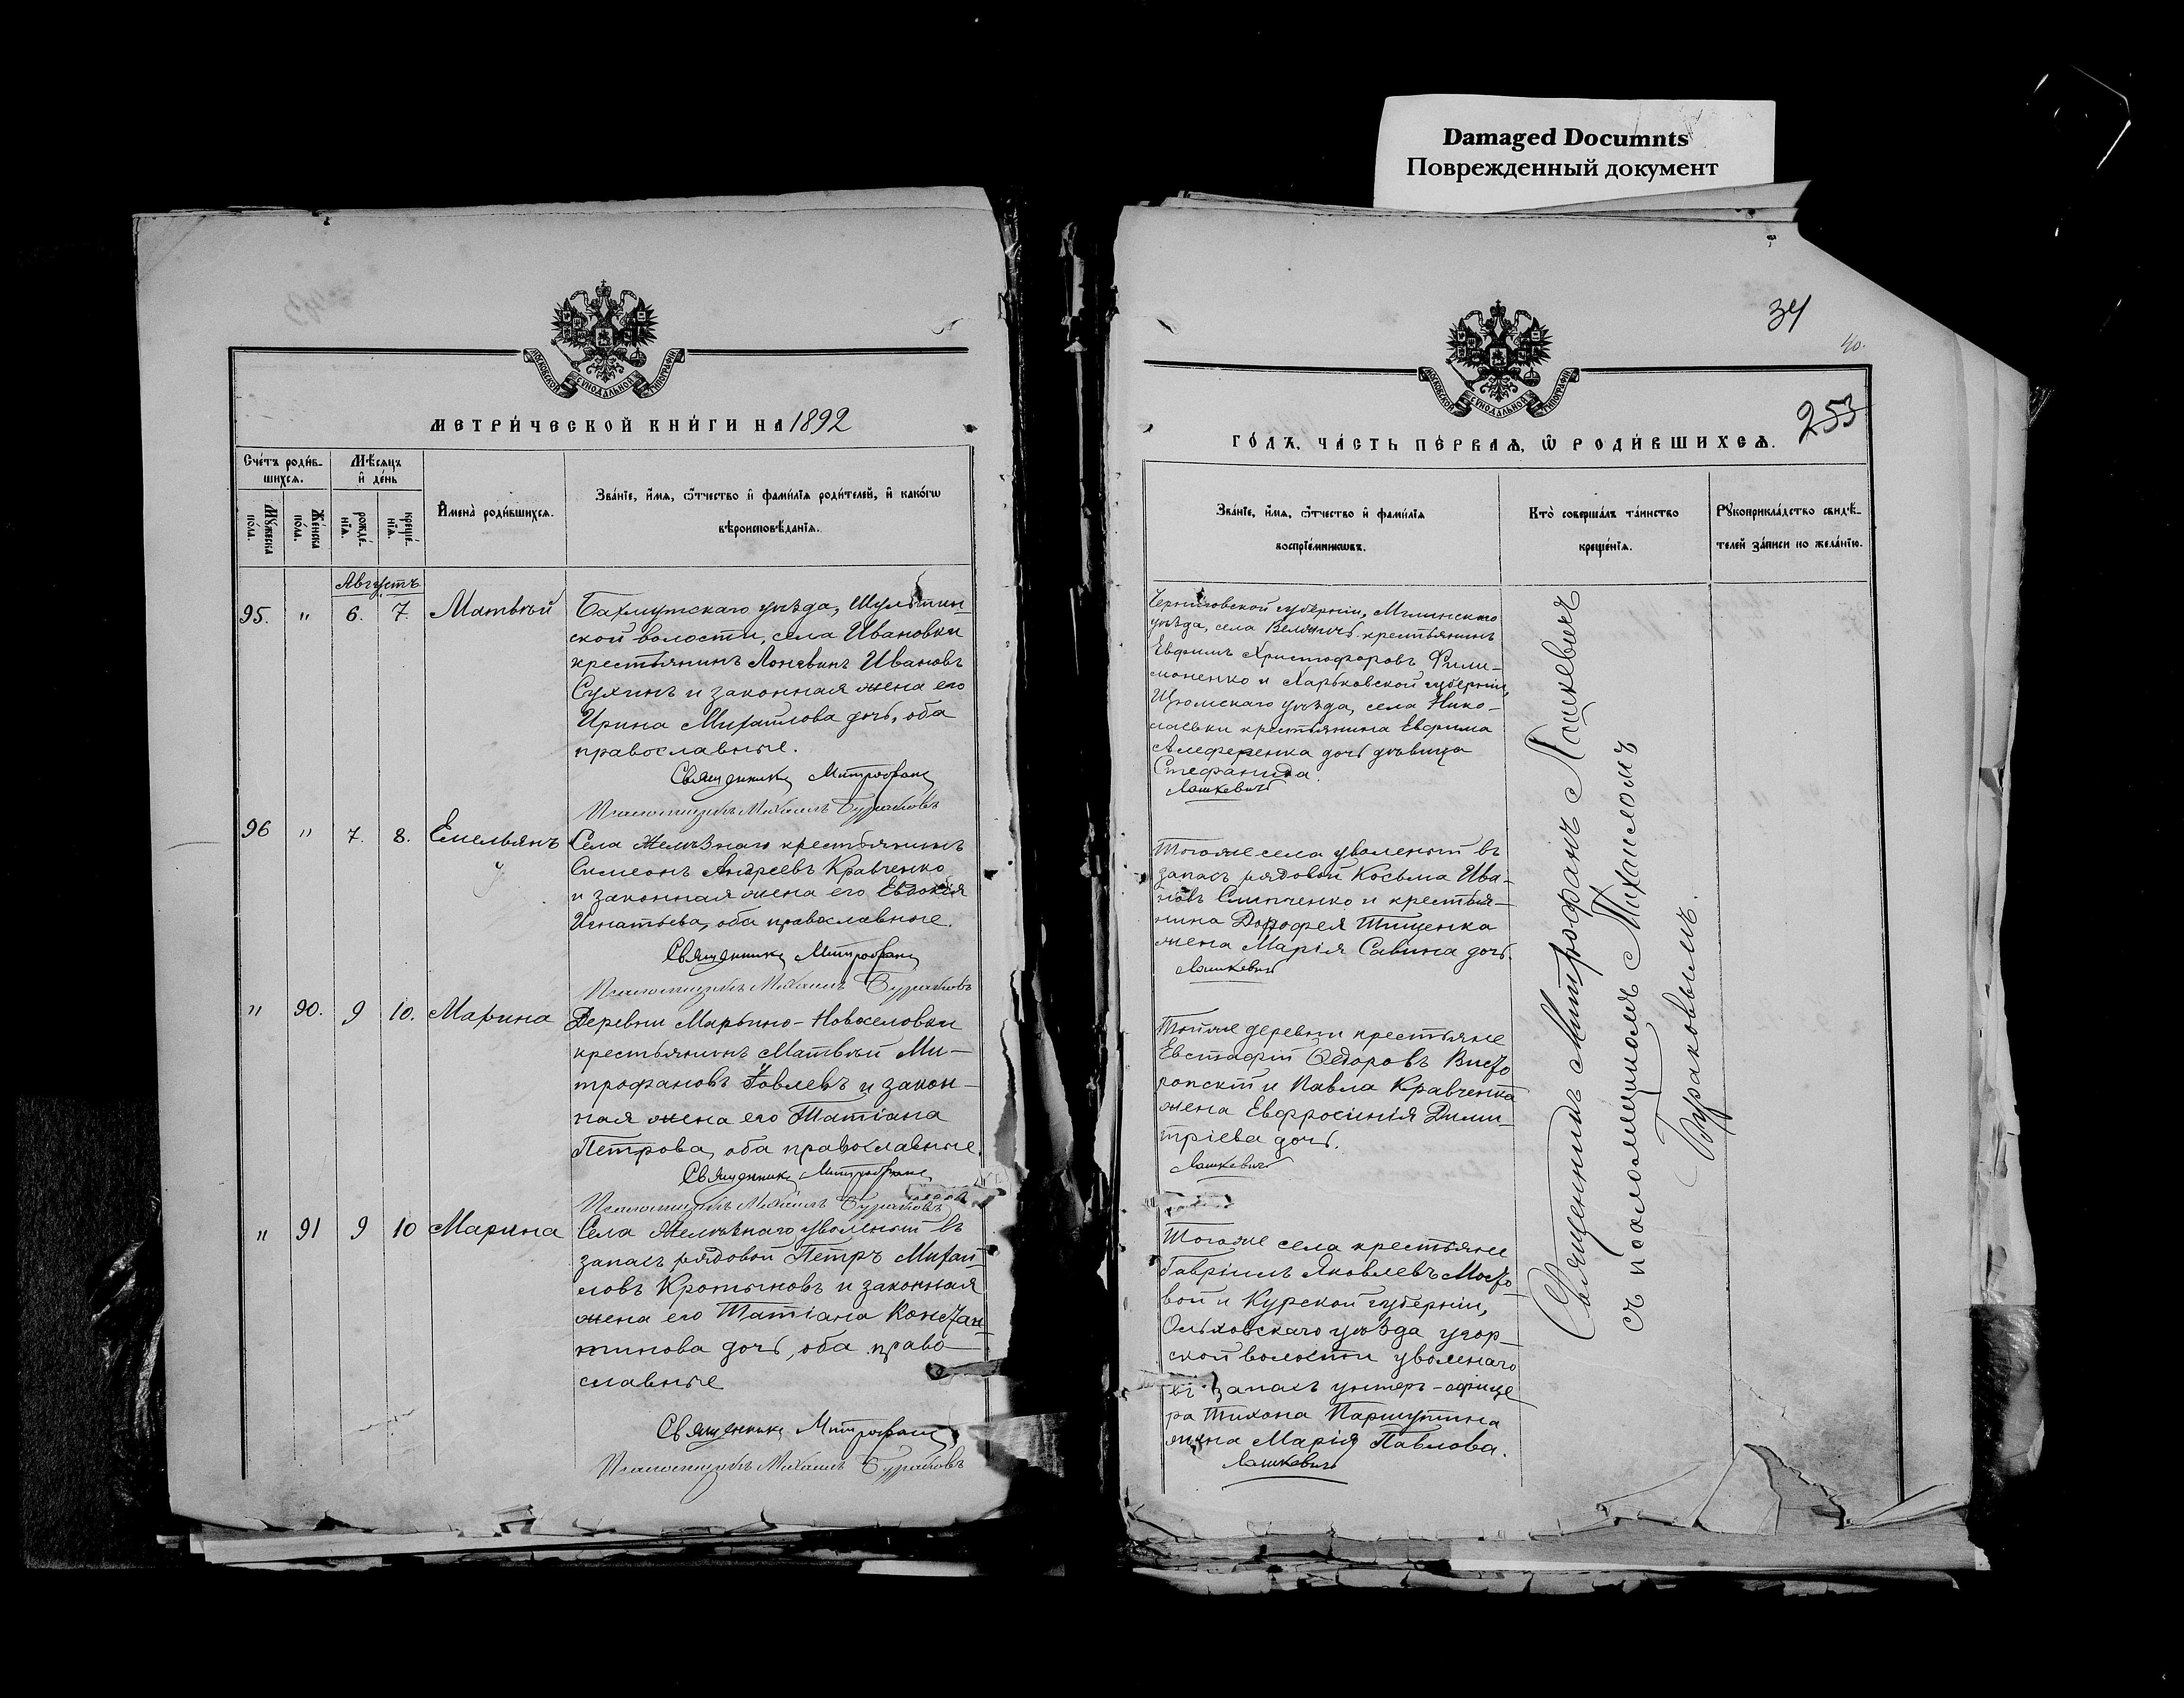 Damaged Documnts
Поврежденный документ
МОСКОВСКОЙ СѴНОДАЛЬНОЙ ТИПОГРАФІИ
МЕТРИ́ЧЕСКОЙ КНИ́ГИ НА 1892
Сче́тъ роди́в-
шихся.
Мѣ́сяцъ
и҆ де́нь
Мꙋ́жеска
по́ла.
Же́нска
по́ла.
рожде́-
нїѧ.
креще́-
нїѧ.
И҆мена̀ роди́вшихсѧ.
Зва́нїе, и҆́мѧ, ѻ҆́тчество и҆ фами́лїѧ роди́телей, и҆ како́гѡ
вѣроисповѣ́данїѧ.
Августъ
95. " 6. 7. Матвѣй
Бахмутскаго уѣзда,
ской волости, села Ивановки
крестьянинъ Лонгинъ Ивановъ
Сухинъ и законная жена его
Ирина Михайлова дочь, оба
православные.
Священникъ Митрофанъ
Псаломщикъ Михаилъ Бураковъ
96 " 7. 8. Емельянъ
Села Желѣзнаго крестьянинъ
Симеонъ Андреевъ Кравченко
и законная жена его Евдокія
Игнатьева, оба православные.
Священникъ Митрофанъ
Псаломщикъ Михаилъ Бураковъ
" 90. 9 10. Марина
Деревни Марьино-Новоселовки
крестьянинъ Матвѣй Ми-
трофановъ и закон-
ная жена его Татіана
Петрова, оба православные.
Священникъ Митрофанъ
Псаломщикъ Михаилъ Бураковъ
" 91 9 10 Марина
Села Желѣзнаго уволеный въ
запасъ рядовой Петръ Михай-
ловъ Кротыновъ и законная
жена его Татіана Констан-
тинова дочь, оба право-
славные
Священникъ Митрофанъ
Псаломщикъ Михаилъ Бураковъ
34
40.
253
МОСКОВСКОЙ СѴНОДАЛЬНОЙ ТИПОГРАФІИ
ГО́ДЪ, ЧА́СТЬ ПЕ́РВАѦ, Ѡ҆ РОДИ́ВШИХСѦ.
Зва́нїе, и҆́мѧ, ѻ҆́тчество и҆ фами́лїѧ
воспрїе́мникѡвъ.
Кто̀ соверша́лъ та́инство
креще́нїѧ.
Рꙋкоприкла́дство свидѣ́-
телей за́писи по жела́нїю.
Черниговской губерніи, Мглинскаго
уѣзда, села крестьянинъ
Евфимъ Христофоровъ Фили-
моненко и Харьковской губерніи,
Изюмскаго уѣзда, села Нико-
лаевки крестьянина Евфима
дочь дѣвица
Стефанида.
Лашкевичъ
Тогоже села уволеный въ
запасъ рядовой Косьма Ива-
новъ Слипченко и крестья-
нина Дорофея Тищенка
жена Марія Савина дочь.
Лашкевичъ
Тойже деревни крестьяне
Евстафій Ѳедоровъ
и Павла Кравченка
жена Евфросинія Дими-
тріева дочь.
Лашкевичъ
Тогоже села крестьяне
Гавріилъ Яковлевъ Мосто-
вой и Курской губерніи,
уѣзда
ской волости уволенаго
въ запасъ унтеръ-офице
ра Тихона Паршутина
жена Марія Павлова.
Лашкевичъ
Священникъ Митрофанъ Лашкевичъ
съ псаломщикомъ Михаиломъ
Бураковымъ.